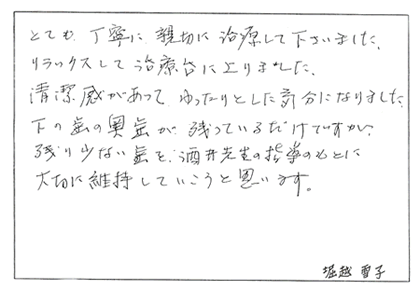 とても、丁寧に 親切に 治療して下さいました。
リラックスして治療台に上りました。
清潔感があって、ゆったりとした気分になりました。
下の歯の奥歯が、残っているだけですが、
残り少ない歯を、酒井先生の指導のもとに
大切に維持していこうと思います。
堀越 雪子